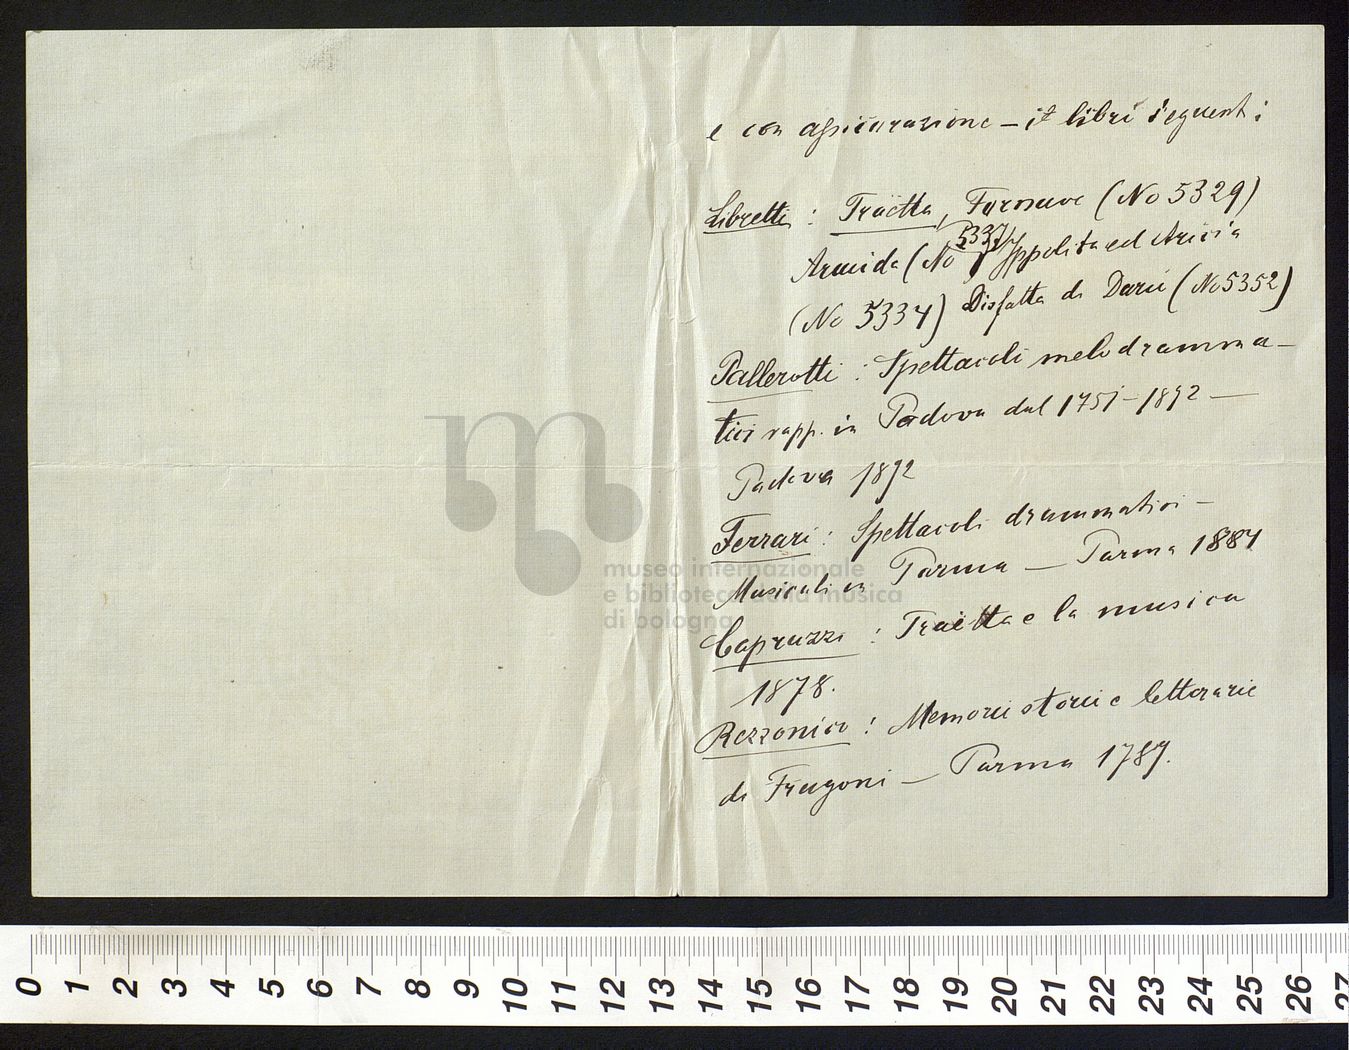 e con assicurazione — it libri seguenti:
Libretti: Traëtta, Farnace (No 5329)
Armida (No 5337) Ippolita ed Aricia
(No 5334) Disfatta di Dario (No 5352)
Pallerotti: Spettacoli melodramma-
tici rapp. in Padova dal 1751–1892 —
Padova 1892
Ferrari: Spettacoli drammatici —
Musicali in Parma — Parma 1884
Capruzzi: Traëtta e la musica
1878.
Rezzonico: Memorie storice letterarie
di Frugoni — Parma 1789.
museo internazionale
e biblioteca della musica
di bologna
0 1 2 3 4 5 6 7 8 9 10 11 12 13 14 15 16 17 18 19 20 21 22 23 24 25 26 27